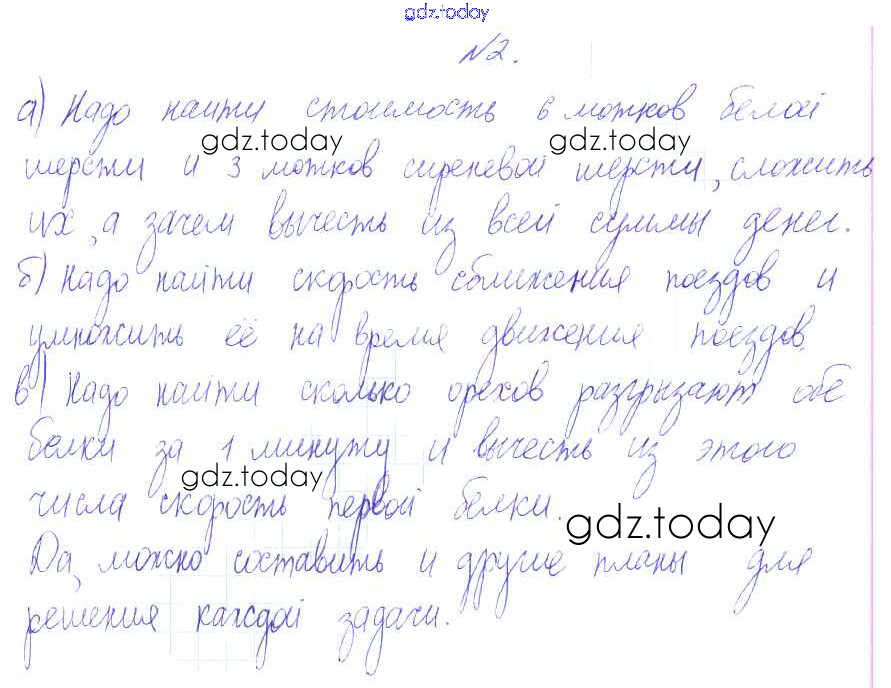 gdz.today
№2.
а) Надо найти стоимость 6 мотков белой
gdz.today gdz.today
шерсти и 3 мотков сиреневой шерсти, сложить
их, а зачем вычесть из всей суммы денег.
б) Надо найти скорость сближения поездов и
умножить её на время движения поездов.
в) Надо найти сколько орехов разгрызают обе
белки за 1 минуту и вычесть из этого
gdz.today
числа скорость первой белки.
gdz.today
Да, можно составить и другие планы для
решения каждой задачи.